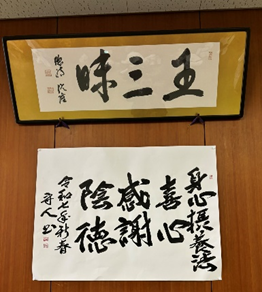 王三昧
身心摂養法
喜心
感謝
陰徳
令和七年新春